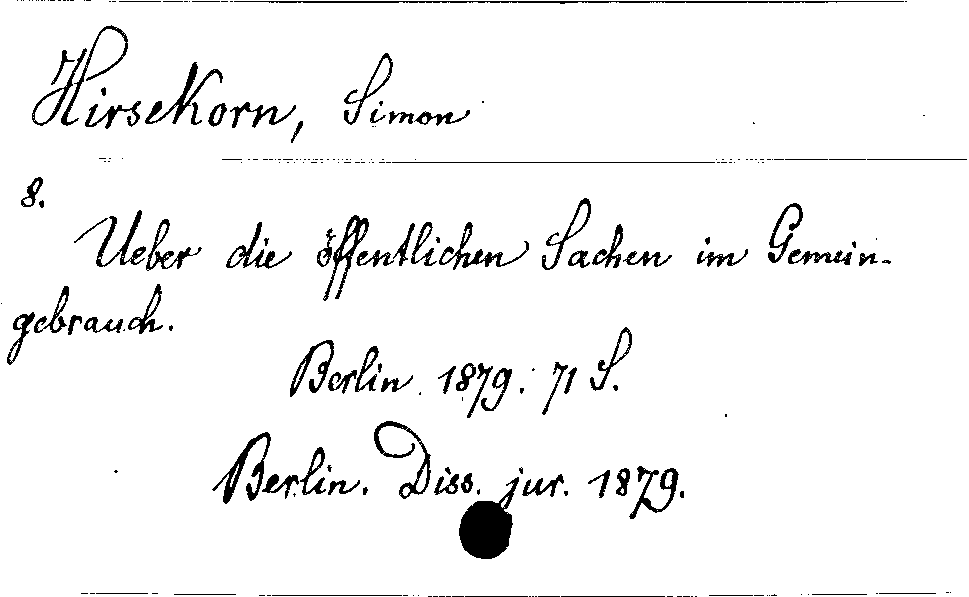 Hirsekorn, Simon
8.
Ueber die öffentlichen Sachen im Gemein-
gebrauch.
Berlin 1879. 71 S.
Berlin. Diss. jur. 1879.